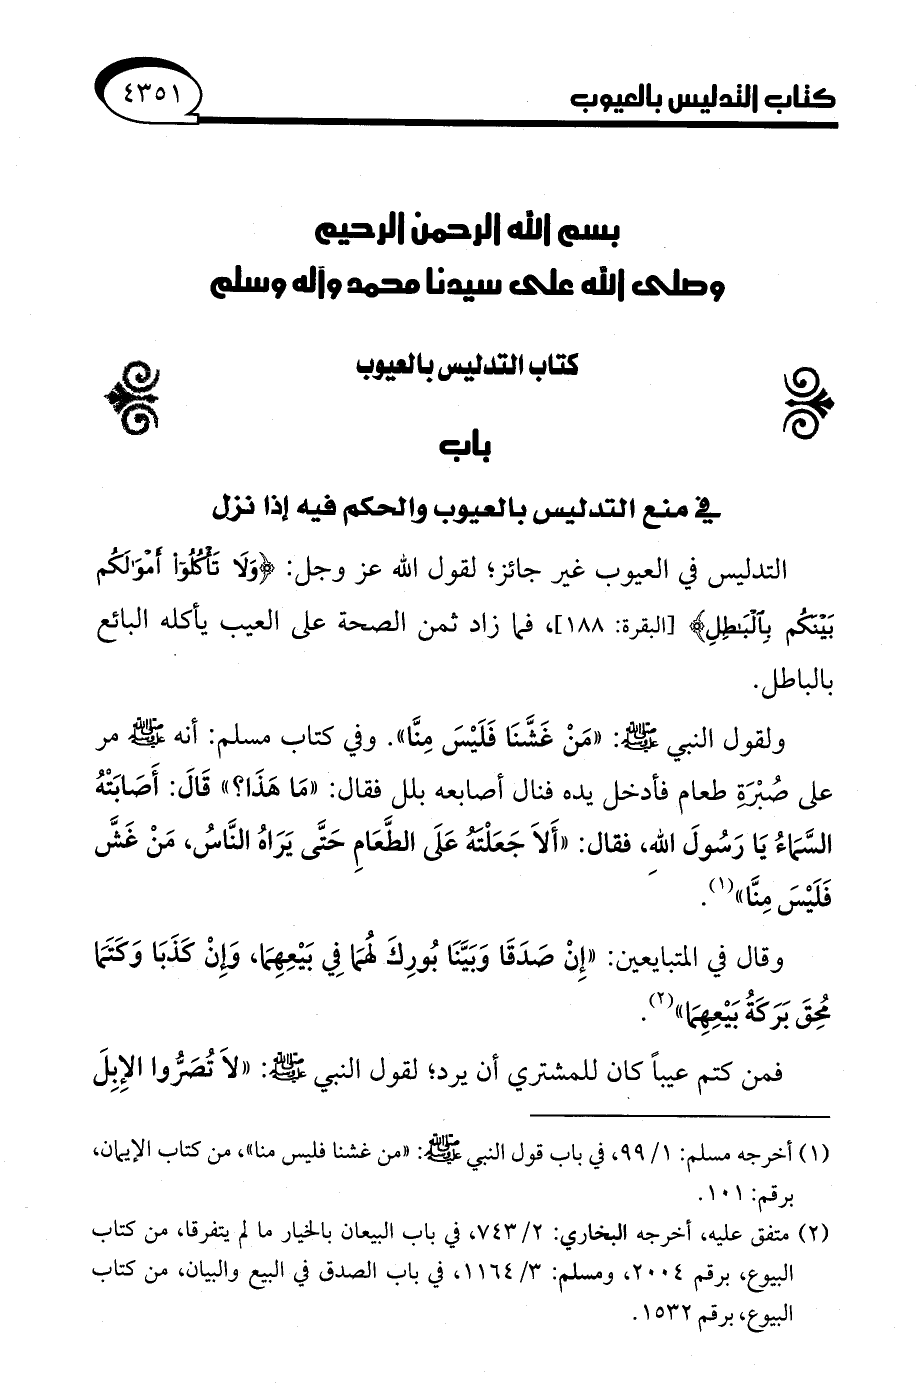 كتاب التدليس بالعيوب
٤٣٥١
بسم الله الرحمن الرحيم
وصلى الله على سيدنا محمد وآله وسلم
كتاب التدليس بالعيوب
باب
في منع التدليس بالعيوب والحكم فيه إذا نزل
التدليس في العيوب غير جائز؛ لقول الله عز وجل: ﴿وَلَا تَأْكُلُوٓا۟ أَمْوَٰلَكُم
بَيْنَكُم بِٱلْبَٰطِلِ﴾ [البقرة: ١٨٨]، فما زاد ثمن الصحة على العيب يأكله البائع
بالباطل.
ولقول النبي ﷺ: «مَنْ غَشَّنَا فَلَيْسَ مِنَّا». وفي كتاب مسلم: أنه ﷺ مر
على صُبْرَةِ طعام فأدخل يده فنال أصابعه بلل فقال: «مَا هَذَا؟» قَالَ: أَصَابَتْهُ
السَّمَاءُ يَا رَسُولَ اللهِ، فقال: «أَلاَ جَعَلْتَهُ عَلَى الطَّعَامِ حَتَّى يَرَاهُ النَّاسُ، مَنْ غَشَّ
فَلَيْسَ مِنَّا»(١).
وقال في المتبايعين: «إِنْ صَدَقَا وَبَيَّنَا بُورِكَ لَهُمَا فِي بَيْعِهِمَا، وَإِنْ كَذَبَا وَكَتَمَا
مُحِقَ بَرَكَةُ بَيْعِهِمَا»(٢).
فمن كتم عيباً كان للمشتري أن يرد؛ لقول النبي ﷺ: «لاَ تُصَرُّوا الإِبِلَ
(١) أخرجه مسلم: ١/ ٩٩، في باب قول النبي ﷺ: «من غشنا فليس منا»، من كتاب الإيمان،
برقم: ١٠١.
(٢) متفق عليه، أخرجه البخاري: ٢/ ٧٤٣، في باب البيعان بالخيار ما لم يتفرقا، من كتاب
البيوع، برقم ٢٠٠٤، ومسلم: ٣/ ١١٦٤، في باب الصدق في البيع والبيان، من كتاب
البيوع، برقم ١٥٣٢.